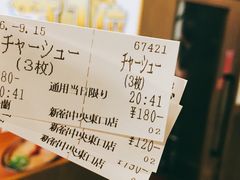 6.-9.15 67421
チャーシュー チャーシュー
(3枚) 通用当日限り (3枚)
80- 20:41 ¥180-
蘭 新宿中央東口店 02
20:41 ¥120-
新宿中央東口店 02